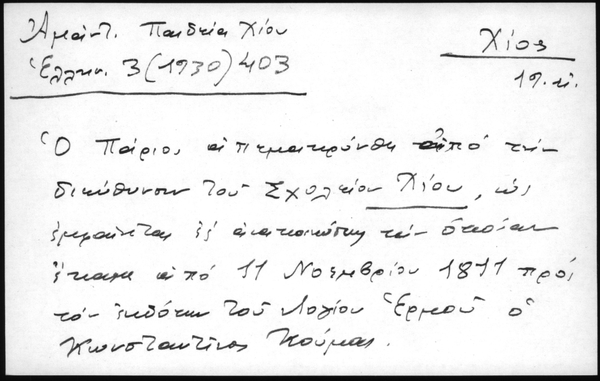 Ἀμάντ. Παιδεία Χίου
Ἑλλην. 3 (1930) 403
Χίος
19. αἰ.
Ὁ Πάριος ἀπεμακρύνθη ἀπό τήν
διεύθυνσιν τοῦ Σχολείου Χίου, ὡς
ἐμφαίνεται ἐξ ἀνακοινώσεως τήν ὁποίαν
ἔκαμε ἀπό 11 Νοεμβρίου 1811 πρός
τόν ἐκδότην τοῦ Λογίου Ἑρμοῦ ὁ
Κωνσταντῖνος Κούμας.